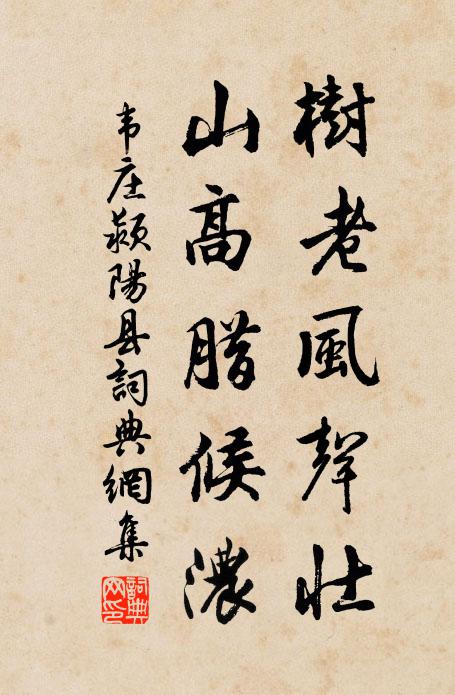 樹老風聲壯
山高腊候濃
韦庄颍陽县詞典網集
詞典網印